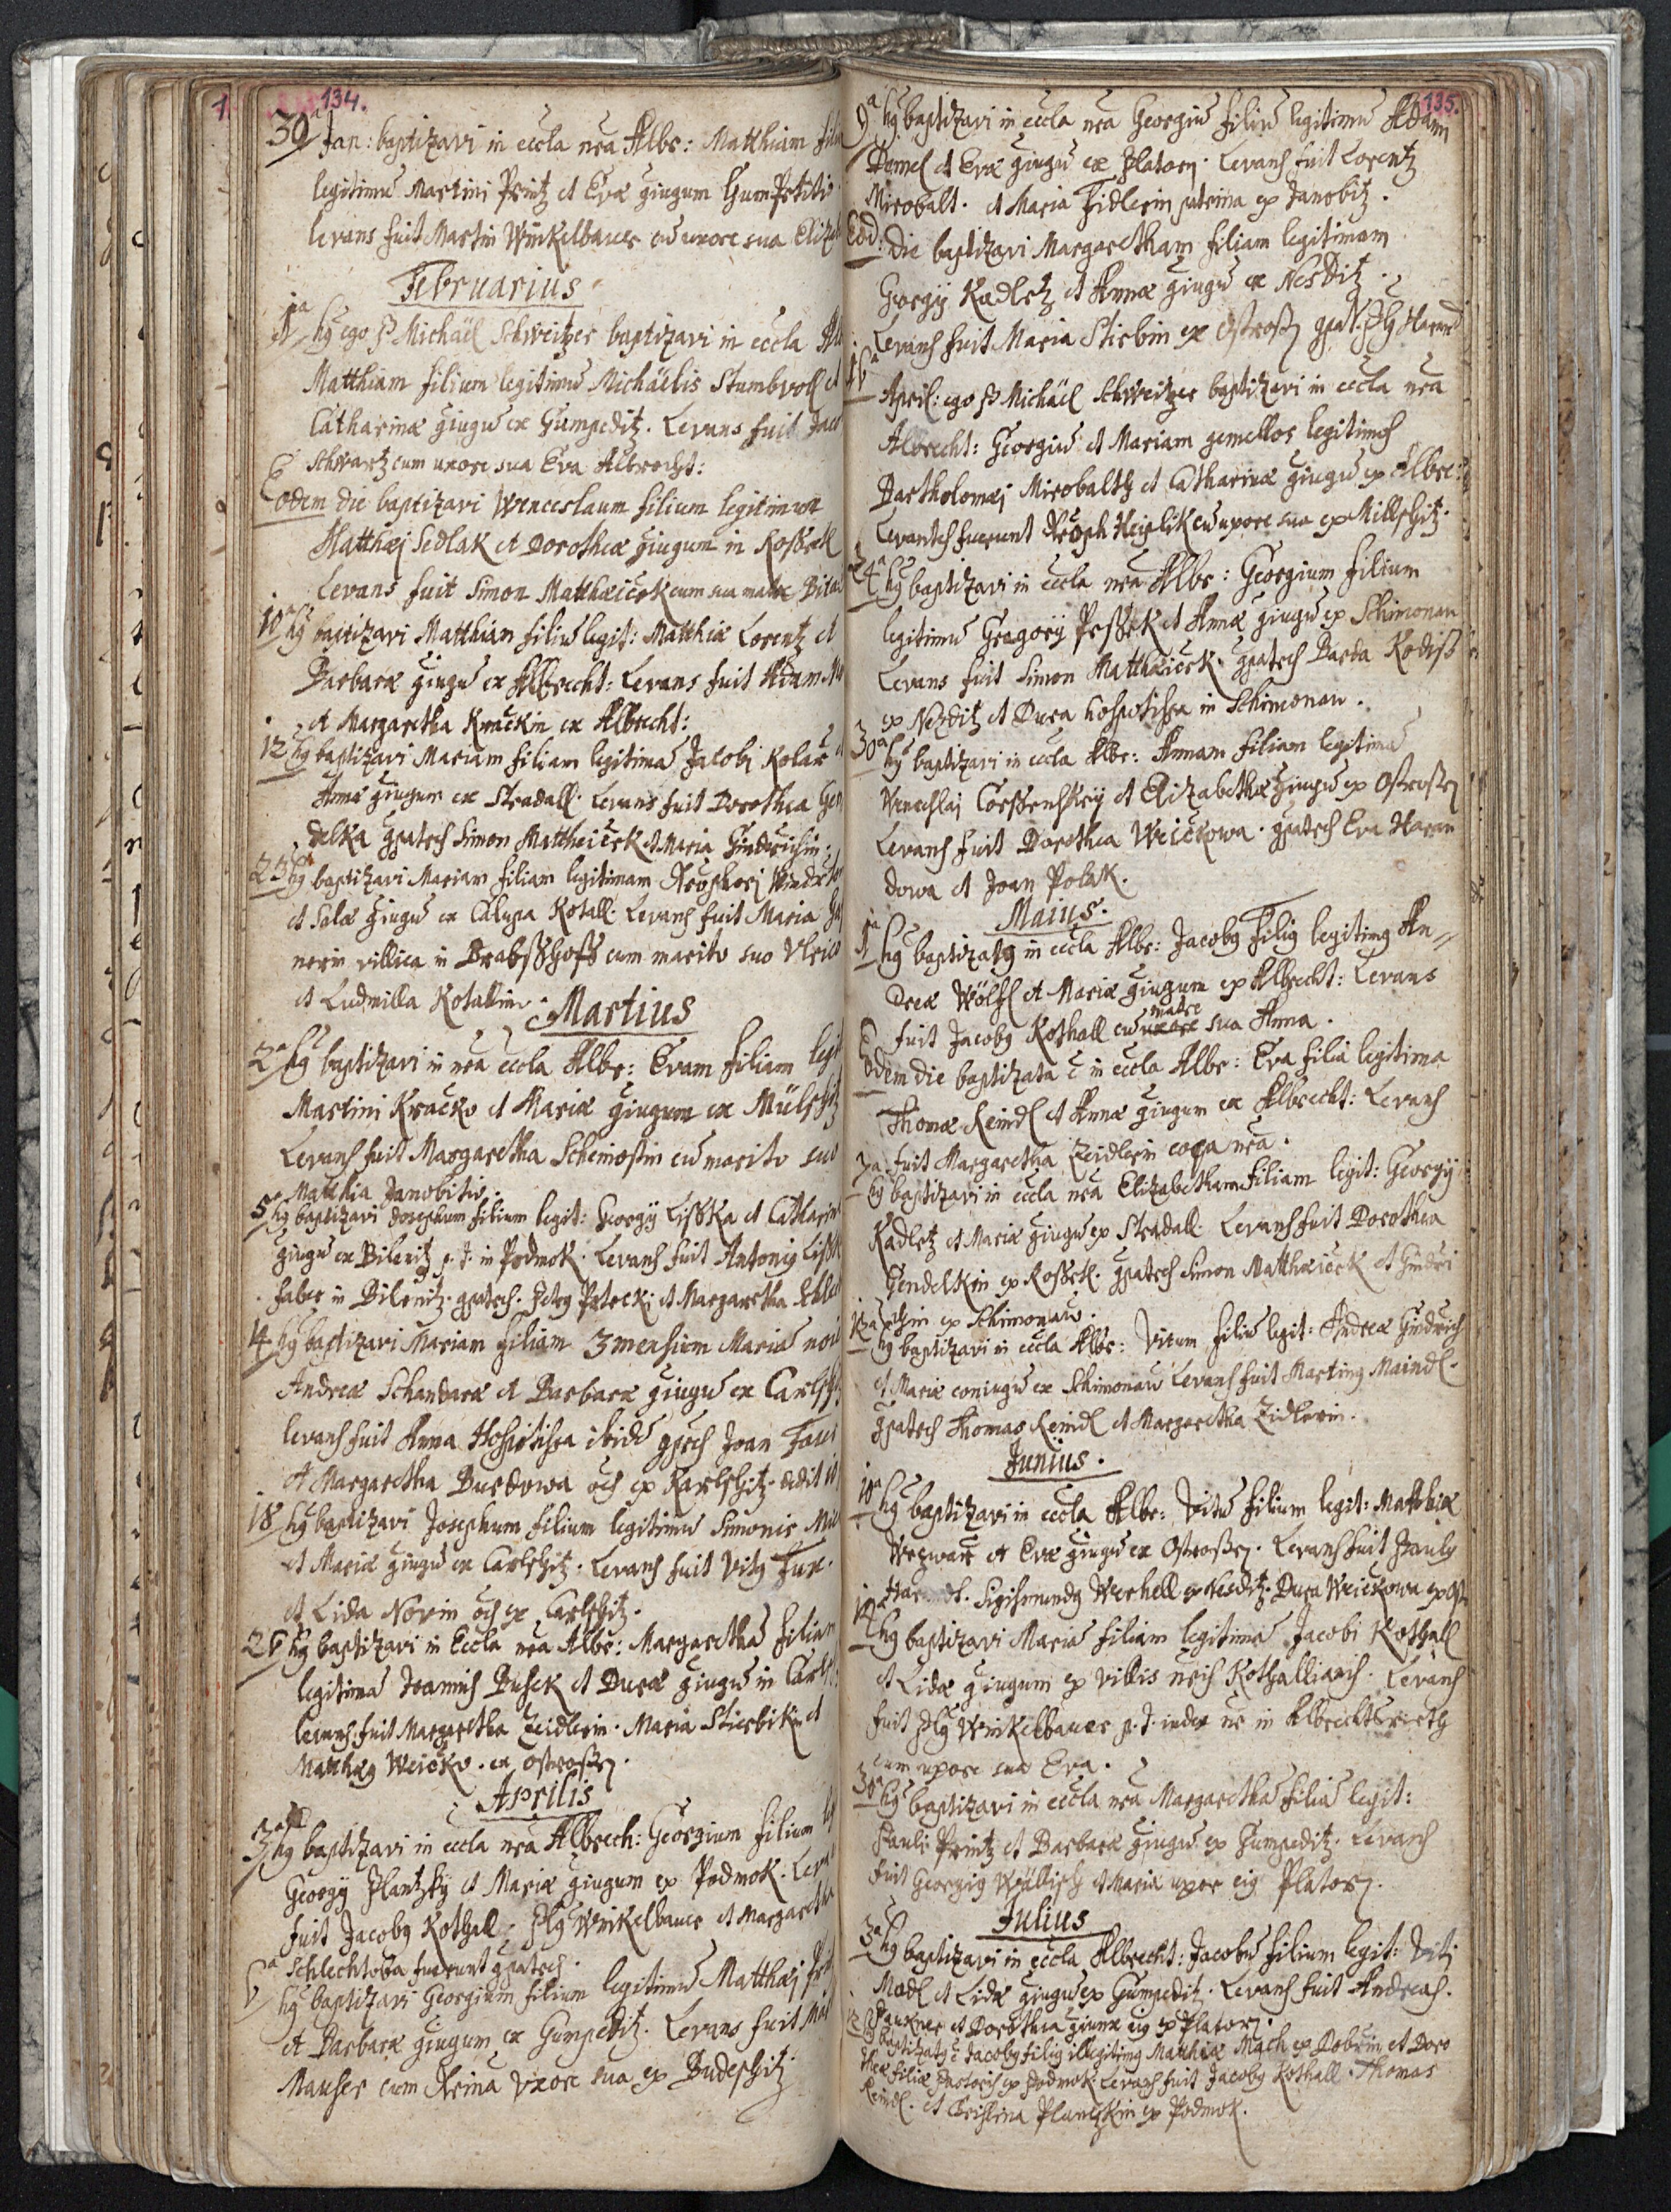 134.
30ª Jan: baptizavi in eccla nra Albr: Matthiam fili
legitimū Martini Printz et Evæ giugum Gumpetitiū
levans fuit Martin Winkelbauer cū uxore sua Eliza
Februarius
1ª hg ego P Michäel Schweitzer baptizavi in eccla Alb
Matthiam filium legitimū Michäelis Stumbvoll et
Catharinæ giugū ex Gumpeditz. Levans fuit Jaco
Schwartz cum uxore sua Eva Albrecht:
Eodem die baptizavi Wenceslaum filium legitimum
Matthæi Sedlak et Dorotheæ giugum in Rossek
Levans fuit Simon Matthæicek cum sua matre
10ª hg baptizavi Matthiam filiū legit: Matthiæ Lorentz et
Barbaræ giugū ex Albrecht: Levans fuit Adam
et Margaretha Kračkin ex Albrecht:
12 hg baptizavi Mariam filiam legitimā Jacobi Kolar et
Annæ giugum ex Stradall. Levans fuit Dorothea Gen
delka gpatres Simon Mattheicek et Maria Gindrichin:
23 hg baptizavi Mariam filiam legitimam
et Salæ giugū ex Calupa Kotall. Levans fuit Maria
nerin villica in Brabsshoff cum marito suo Vlrico
et Ludmilla Kotallin.
Martius
2ª hg baptizavi in nra eccla Albr: Evam filiam legit
Martini Kračko et Mariæ giugum ex Mülschitz
Levans fuit Margaretha cū marito suo
Matthia Janobitio.
5ª hg baptizavi Josephum filium legit: Georgÿ Lisska et Catharinæ
giugū ex Bilenitz p. t. in Podmok. Levans fuit Antonig Lissk
faber in Bilenitz. gpatres. Petrg Potocki et Margaretha
14 hg baptizavi Mariam filiam 3 mensium Mariā
Andreæ Schandara et Barbaræ giugū ex Carlsch
levans fuit Anna Hospitissa ibidē Joan
et Margaretha Burdowa ex Karlschitz.
18 hg baptizavi Josephum filium legitimū Simonis
et Mariæ giugū ex Carlschitz. Levans fuit Vitg Fux.
et Lida Novin ex Carlschitz.
26 hg baptizavi in Eccla nra Albr: Margarethā filiam
legitimā Joannis Bušek et Duræ giugū in Carls
levans fuit Margaretha Zeidlerin. Maria Stierbikin et
Matthæg Weičko. ex Ostrossen.
Aprilis
3ª hg baptizavi in eccla nra Albrech: Georgium filium
Georgÿ Plantzkÿ et Mariæ giugum ex Podmok. Leva
fuit Jacobg Kothall. Winkelbauer et Margaretha
Schlechtova fuerunt gpatres.
6ª hg baptizavi Georgium filium legitimū Matthæi
et Barbaræ giugum ex Gumpeditz. Levans fuit
Mauser cum uxore sua ex Budeschitz.
135.
9ª hg baptizavi in eccla nra Georgiū filiū legitimū Adami
et Evæ giugū ex Platorn. Levans fuit Lorentz
Mirobalt. et Maria Fidlerin patrina ex Janobitz.
Eod: die baptizavi Margaretham filiam legitimam
Georgÿ Kadletz et Annæ giugū ex Nesditz.
Levans fuit Maria Stirbin ex Ostrossen
16ª
April: ego P Michäel Schweitzer baptizavi in eccla nra
Albrecht: Georgiū et Mariam gemellos legitimos
Bartholomæi Mirobaltz et Catharinæ giugū ex Albre:
Levantes fuerunt cū uxore sua ex Millschitz.
24ª hg baptizavi in eccla nra Albr: Georgium filium
legitimū Gregorÿ Pessek et Annæ giugū ex Schimonau
Levans fuit Simon Matthæicek. gpatres Barta Kodiss
ex Nezditz et Dura hospitissa in Schimonau.
30ª hg baptizavi in eccla Albr: Annam filiam legitimā
Wenceslai et Elizabethæ giugū ex Ostrossen
Levans fuit Dorothea Weičkowa. gpatres Eva Haran
dowa et Joan Polak.
Maius.
1ª hg baptizatg in eccla Albr: Jacobg filig legitimg An
dreæ Wölfl et Mariæ giugum ex Albrecht: Levans
matre
fuit Jacobg Kothall cū uxore sua Anna.
Eodem die baptizata ē in eccla Albr: Eva filia legitima
Thomæ Reindl et Annæ giugum ex Albrecht: Levans
fuit Margaretha Zeidlerin coqa nra.
7ª hg baptizavi in eccla nra Elizabetham filiam legit: Georgÿ
Kadletz et Mariæ giugū ex Stradall. Levans fuit Dorothea
Gendelkin ex Rossek. gpatres Simon Matthæicek et Gindri
schin ex Schimonau.
12ª hg baptizavi in eccla Albr: Vitum filiū legit: Andreæ Gindrich
et Mariæ coniugū ex Schimonau Levans fuit Marting Maindl.
gpatres Thomas Reindl et Margaretha Zidlerin.
Junius.
10ª hg baptizavi in eccla Albr: Vitū filium legit: Matthiæ
Wegwar et Evæ giugū ex Ostrossen. Levans fuit Paulg
Sigismundg Werhell ex Nesditz. Dura Weičkowa ex Ost
12ª hg baptizavi Mariā filiam legitimā Jacobi Kothall
et Lidæ giugum ex villis nris Kothallianis. Levans
fuit Winkelbauer p. t. iudex nr in Albrechtsrieth
cum uxore sua Eva.
30ª hg baptizavi in eccla nra Margarethā filiā legit:
Pauli Printz et Barbaræ giugū ex Gumpeditz. Levans
fuit Georgig Wüllisch et Maria uxor eig Platorn.
Julius
3ª hg baptizavi in eccla Albrecht: Jacobū filium legit: Viti
Madl et Lidæ giugū ex Gumpeditz. Levans fuit Andreas.
Paukner et Dorothea giunx eig ex Platorn.
12 baptizatg ē Jacobg filig illegitimg Matthiæ Mach ex Dobrin et Doro
theæ filiæ Pastoris ex Podmok. Levans fuit Jacobg Kothall. Thomas
Reindl. et Cristina Planskin ex Podmok.